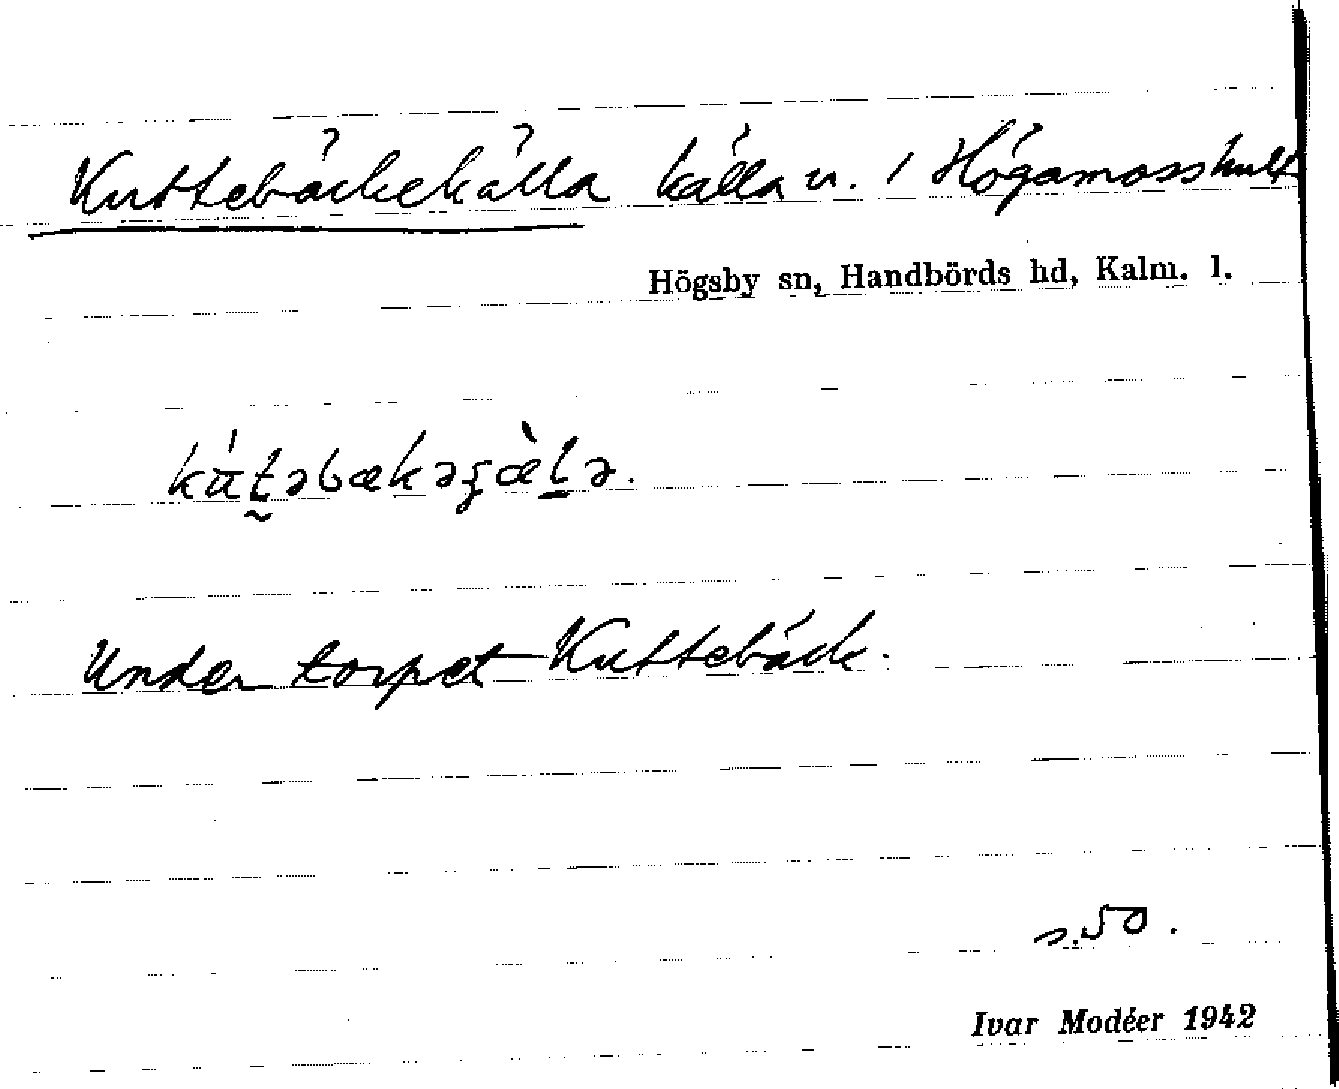 Kuttebäckekälla källa u. / Högamosshult
Högsby sn, Handbörds hd, Kalm. l.
Under torpet Kuttebäck.
s. 50.
Ivar Modéer 1942